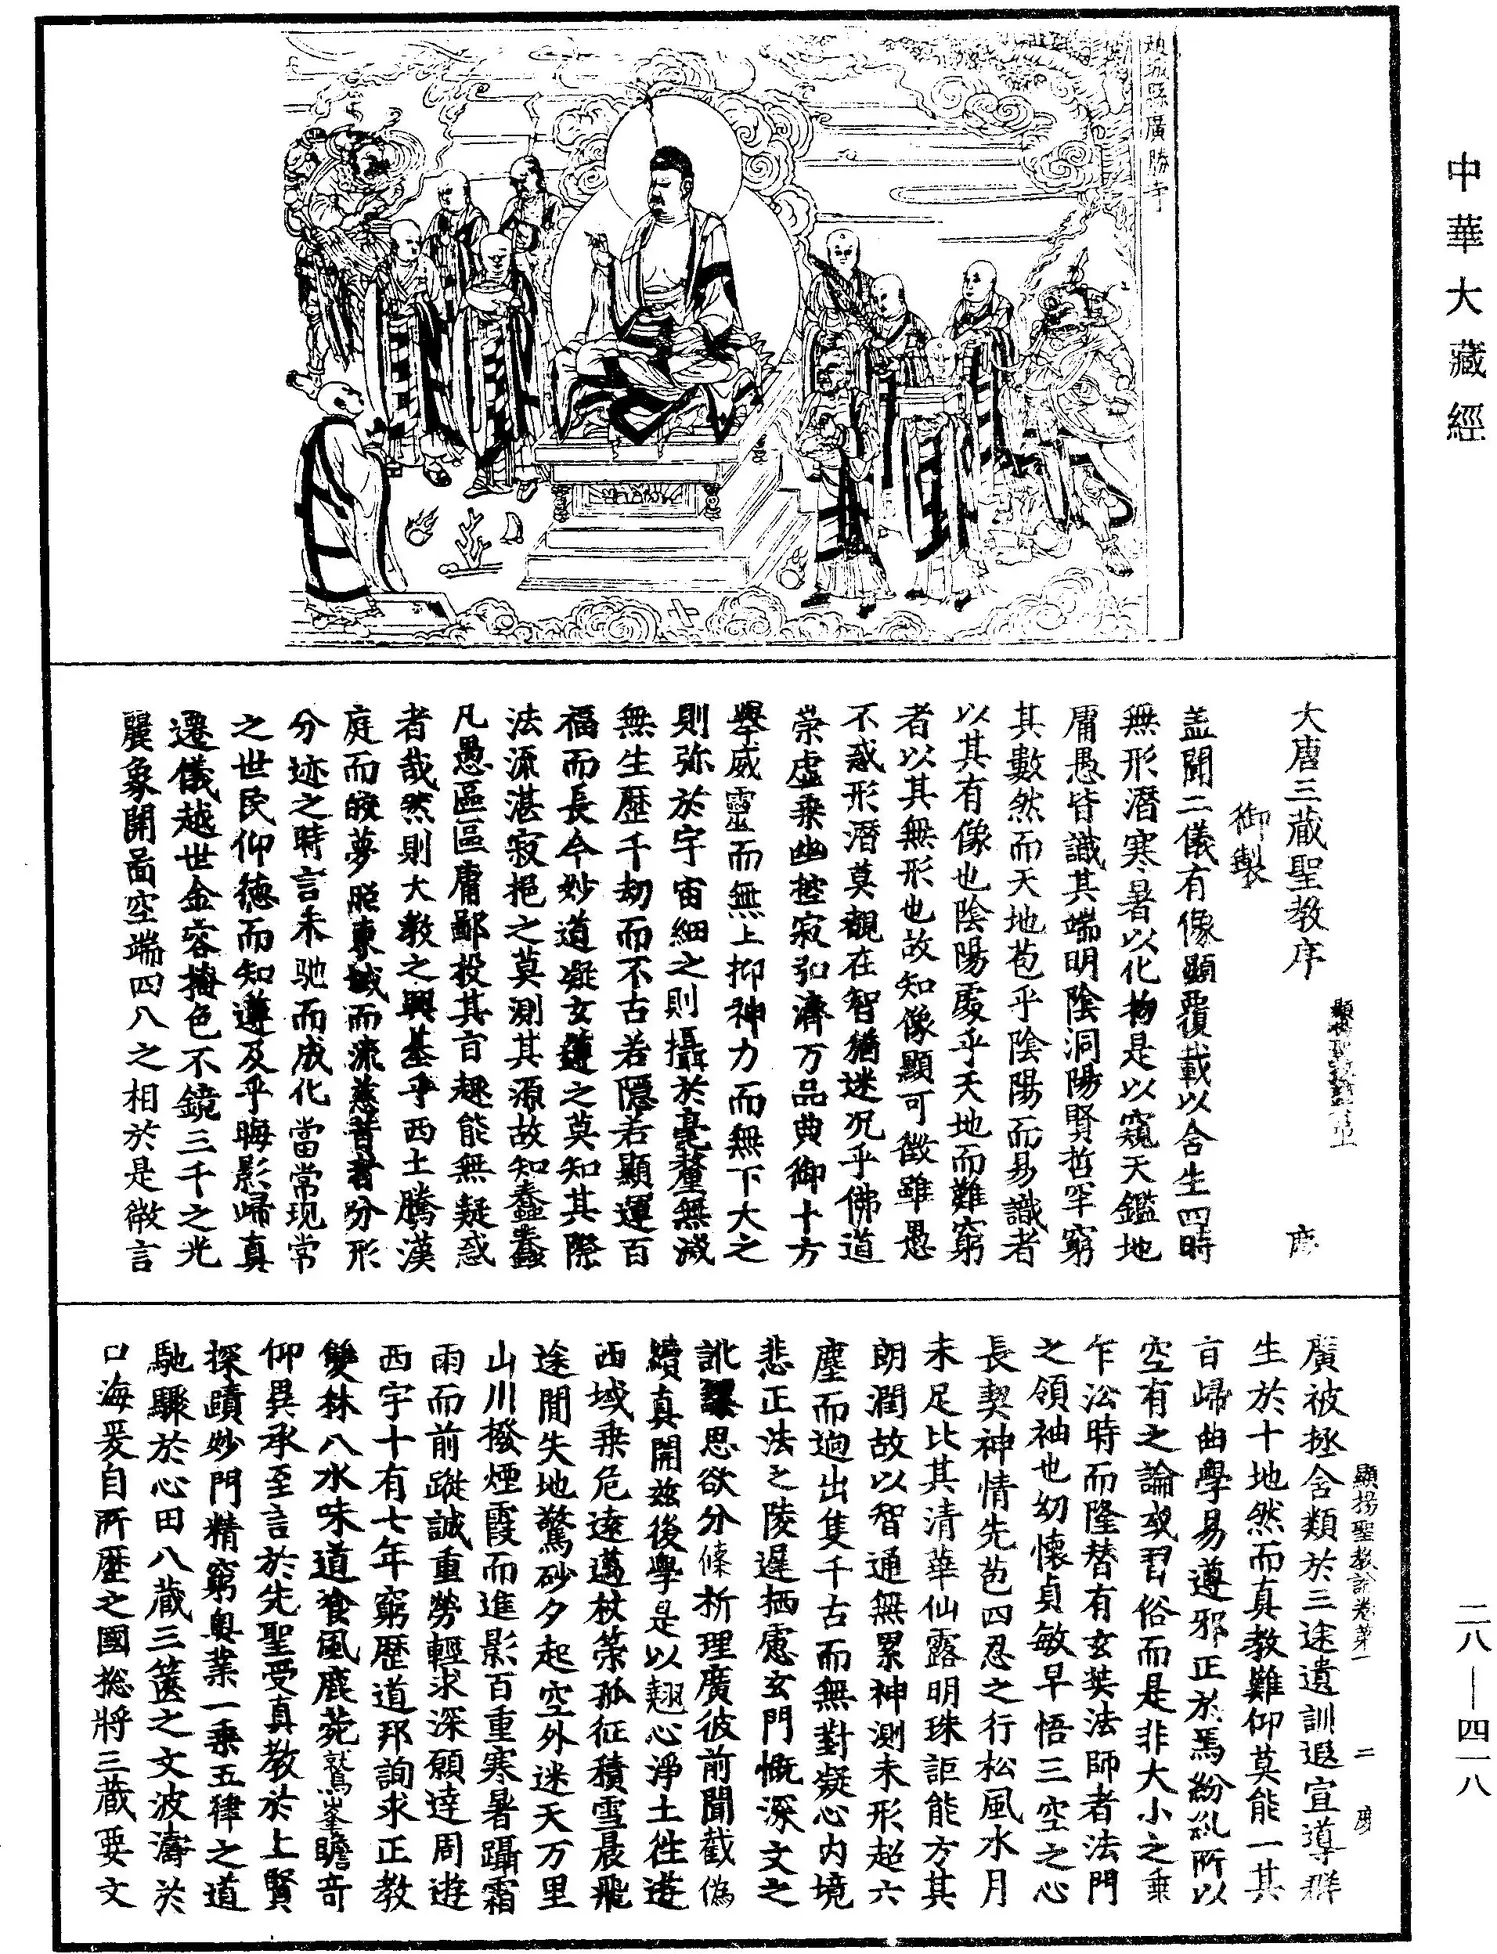 中華大藏經
趙城縣廣勝寺
大唐三藏聖教序
御製
盖聞二儀有像顯覆載以含生四時
無形潛寒暑以化物是以窺天鑑地
庸愚皆識其端明陰洞陽賢哲罕窮
其數然而天地苞乎陰陽而易識者
以其有像也陰陽處乎天地而難窮
者以其無形也故知像顯可徵雖愚
不惑形潛莫覩在智猶迷况乎佛道
崇虛乗幽控寂弘濟万品典御十方
舉威靈而無上抑神力而無下大之
則弥於宇宙細之則攝於毫釐無滅
無生歷千劫而不古若隱若顯運百
福而長今妙道凝玄遵之莫知其際
法流湛寂挹之莫測其源故知蠢蠢
凡愚區區庸鄙投其旨趣能無疑惑
者哉然則大教之興基乎西土騰漢
庭而皎夢照東域而流慈昔者分形
分迹之時言未馳而成化當常現常
之世民仰德而知遵及乎晦影歸真
遷儀越世金容掩色不鏡三千之光
麗象開啚空端四八之相於是微言
廣被拯含類於三途遺訓遐宣導群
生於十地然而真教難仰莫能一其
旨歸曲學易遵邪正於焉紛乣所以
空有之論或習俗而是非大小之乗
乍㳂時而隆替有玄奘法師者法門
之領袖也幼懷貞敏早悟三空之心
長契神情先苞四忍之行松風水月
未足比其清華仙露明珠詎能方其
朗潤故以智通無累神測未形超六
塵而逈出隻千古而無對凝心內境
悲正法之陵遲栖慮玄門慨深文之
訛謬思欲分條析理廣彼前聞截偽
續真開茲後學是以翹心淨土徃遊
西域乗危遠邁杖策孤征積雪晨飛
途閒失地驚砂夕起空外迷天万里
山川撥煙霞而進影百重寒暑躡霜
雨而前蹤誠重勞輕求深願達周遊
西宇十有七年窮歷道邦詢求正教
雙林八水味道飡風鹿菀鷲峯瞻奇
仰異承至言於先聖受真教於上賢
探賾妙門精窮奧業一乗五律之道
馳驟於心田八藏三篋之文波濤於
口海爰自所歷之國揔將三藏要文
顯揚聖教論卷第一　二　度
二八—四一八